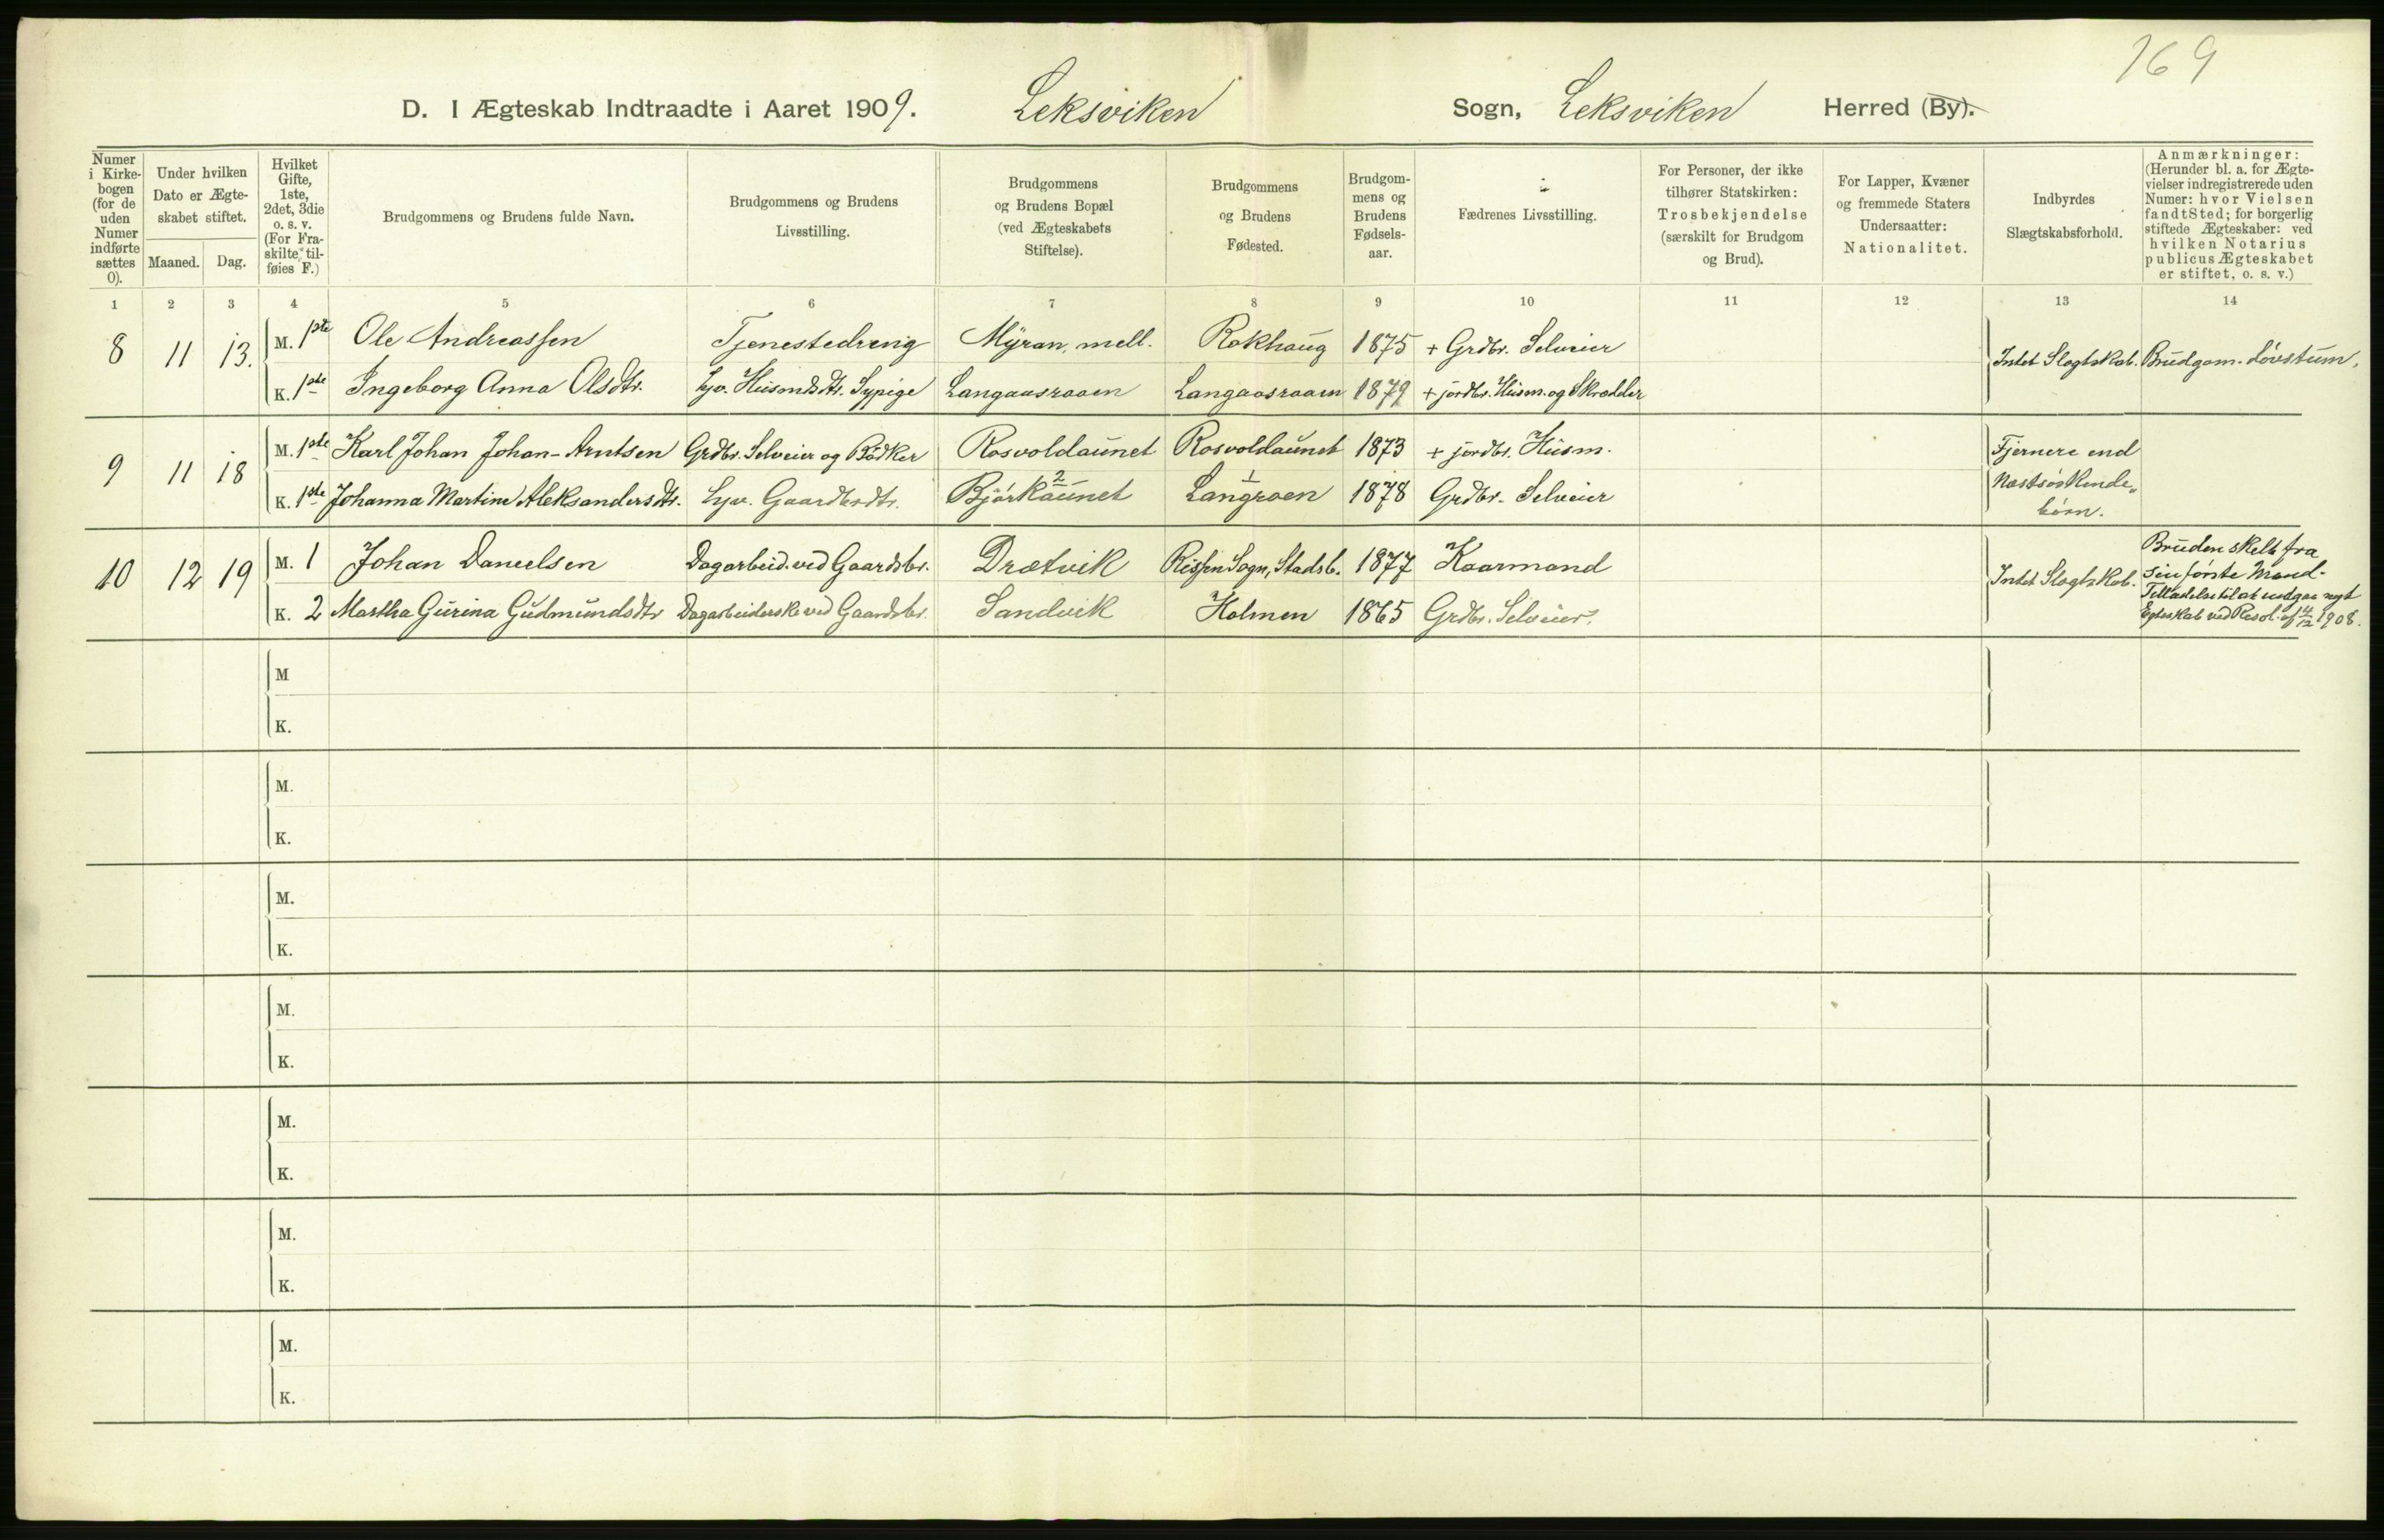 169
D. I Ægteskab Indtraadte i Aaret 1909. Leksviken Sogn, Leksviken Herred (By).
Numer i Kirkebogen (for de uden Numer indførte sættes 0).
Under hvilken Dato er Ægteskabet stiftet.
Maaned. Dag.
Hvilket Gifte, 1ste, 2det, 3die o. s. v. (For Fraskilte tilføies F.)
Brudgommens og Brudens fulde Navn.
Brudgommens og Brudens Livsstilling.
Brudgommens og Brudens Bopæl (ved Ægteskabets Stiftelse).
Brudgommens og Brudens Fødested.
Brudgommens og Brudens Fødselsaar.
Fædrenes Livsstilling.
For Personer, der ikke tilhører Statskirken: Trosbekjendelse (særskilt for Brudgom og Brud).
For Lapper, Kvæner og fremmede Staters Undersaatter: Nationalitet.
Indbyrdes Slægtskabsforhold.
Anmærkninger: (Herunder bl. a. for Ægtevielser indregistrerede uden Numer: hvor Vielsen fandt Sted; for borgerlig stiftede Ægteskaber: ved hvilken Notarius publicus Ægteskabet er stiftet, o. s. v.)
1 2 3 4 5 6 7 8 9 10 11 12 13 14
8 11 13. M. 1ste Ole Andreassen Tjenestedreng Myran, mell. Rokhaug 1875 + Grdbr. Selveier Intet Slægtskab. Brudgom. døvstum.
K. 1ste Ingeborg Anna Olsdtr. hjv. Husmdsdtr. Sypige Langaasraaen Langaasraaen 1879 + jordbr. Husm. og Skrædder
9 11 18 M. 1ste Karl Johan Johan-Arntsen Grdbr. Selveier og Bødker Rosvoldaunet Rosvoldaunet 1873 + jordbr. Husm. Fjernere end
K. 1ste Johanna Martine Aleksandersdtr. hjv. Gaardbrdtr. Bjørkaunet 2 Langroen 1 1878 Grdbr. Selveier Næstsøskende-
børn.
10 12 19 M. 1 Johan Danielsen Dagarbeid. ved Gaardsbr. Drætvik Rissen Sogn, Stadsb. 1877 Kaarmand Intet Slægtskab.
K. 2 Martha Gurina Gudmundsdtr Dagarbeiderske ved Gaardsbr. Sandvik Holmen 1865 Grdbr. Selveier.
Bruden skelt fra
sin første Mand.
Tilladelse til at indgaa nyt
Egteskab ved Resol. af 4/12 1908.
M
K.
M.
K.
M.
K.
M.
K.
M.
K.
M.
K.
M.
K.